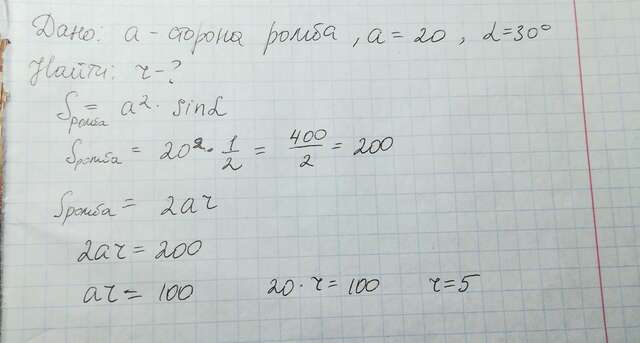 Дано: a - сторона ромба, a = 20, α = 30°
Найти: r - ?
Sромба = a² · sinα
Sромба = 20² · 1/2 = 400/2 = 200
Sромба = 2ar
2ar = 200
ar = 100 20 · r = 100 r = 5